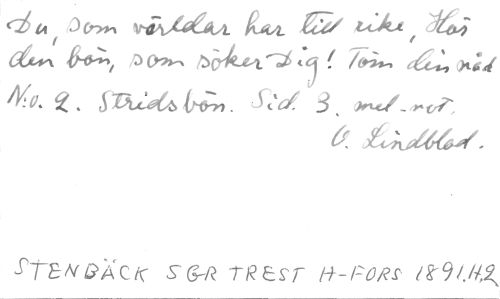 Du, som världar har till rike, Hör
den bön, som söker Dig! Töm din nåd
N:o. 2. Stridsbön. Sid. 3. mel-not.
O. Lindblad.
STENBÄCK SGR TREST H-FORS 1891.H.2